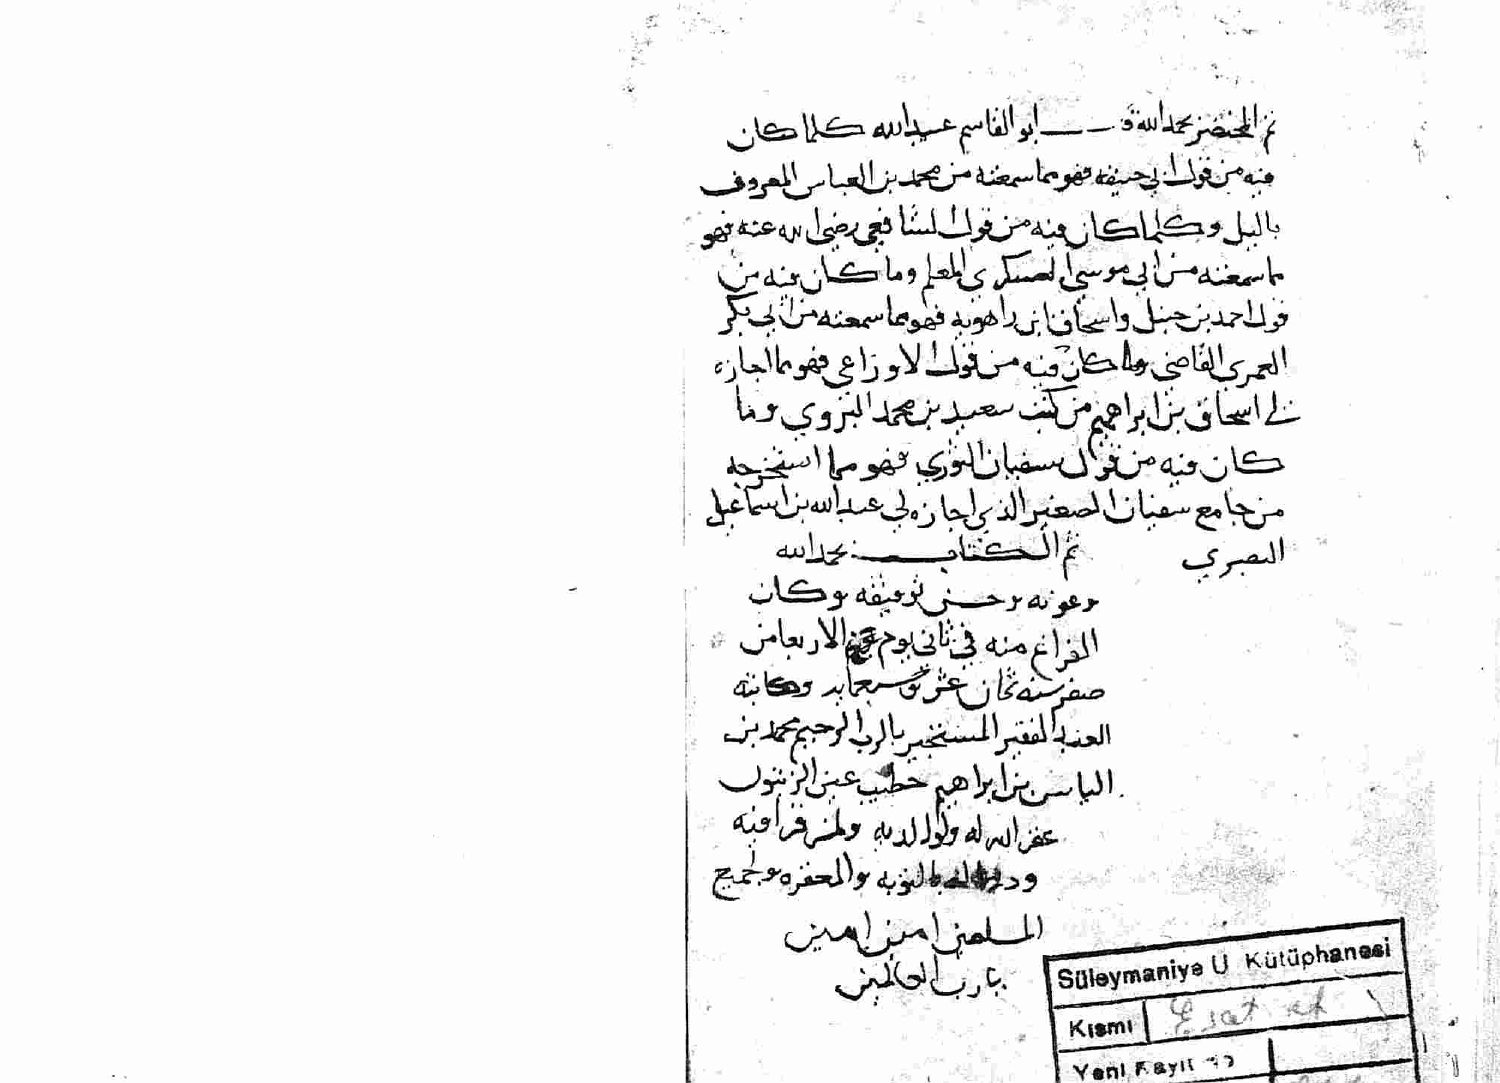 تم المختصر بحمد الله قـــال ابو القاسم عبد الله كلما كان
فيه من قول ابي حنيفه فهو مما سمعته من محمد بن العباس المعروف
بالبل وكلما كان فيه من قول الشافعي رضي الله عنه فهو
مما سمعته من ابي موسي العسكري المعلم وما كان فيه من
قول احمد بن حنبل واسحاق ابن راهويه فهو مما سمعته من ابي بكر
العمري القاضي وما كان فيه من قول الاوزاعي فهو مما اجازه
لي اسحاق بن ابراهيم من كتب سعيد بن محمد البزوي وما
كان فيه من قول سفيان الثوري فهو مما استخرجه
من جامع سفيان الصغير الذي اجازه لي عبد الله بن اسماعيل
البصري تم الكتاب بحمد الله
وعونه وحسن توفيقه وكان
الفراغ منه في ثاني يوم الاربعا من
صفر سنه ثمان عشر وسبعمايه وكاتبه
العبد الفقير المستجير بالرب الرحيم محمد بن
الياس بن ابراهيم خطيب عين الزيتون
غفر الله له ولوالديه ولمن قرا فيه
ودعا له بالتوبه والمغفره ولجميع
المسلمين امين امين
يا رب العالمين
Süleymaniye U Kütüphanesi
Kısmı Esat ef
Yeni Kayıt